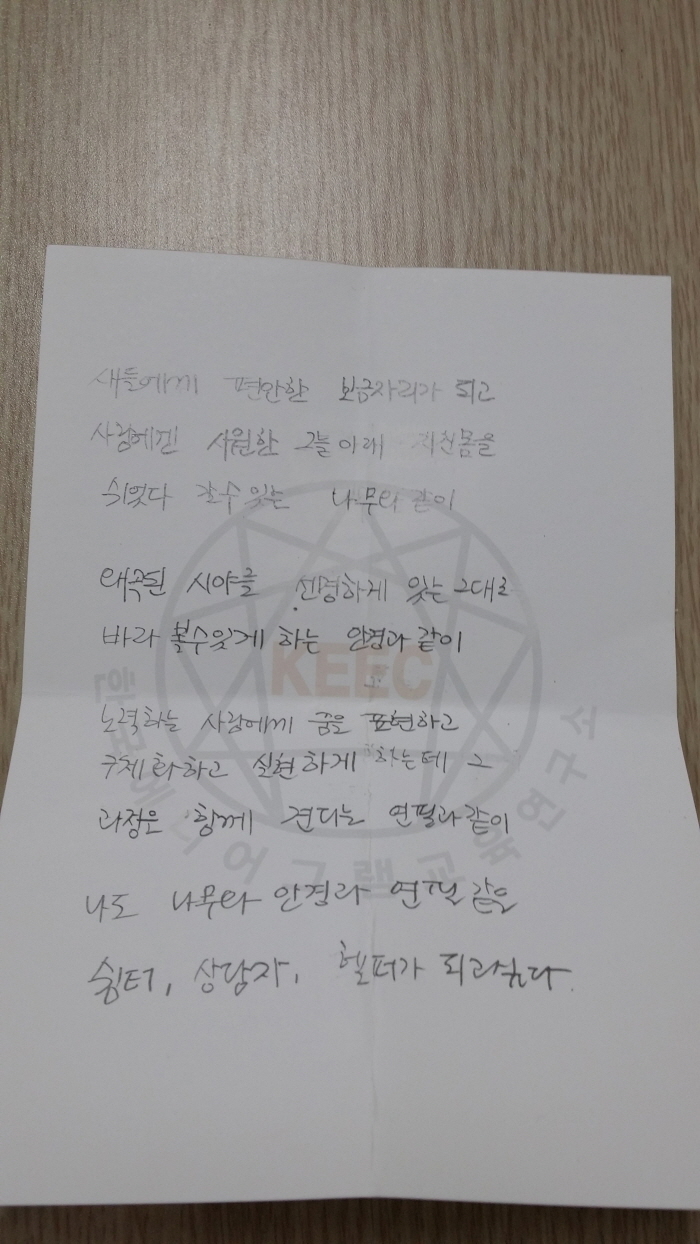 새들에게 편안한 보금자리가 되고
사람에겐 시원한 그늘 아래 지친몸을
쉬었다 갈수 있는 나무와 같이
왜곡된 시야를 선명하게 있는 그대로
바라 볼수있게 하는 안경과 같이
노력하는 사람에게 꿈을 표현하고
구체화하고 실현하게 하는데 그
과정을 함께 견디는 연필과 같이
나도 나무와 안경과 연필 같은
쉼터, 상담자, 헬퍼가 되고싶다.
KEEC
한국에니어그램교육연구소